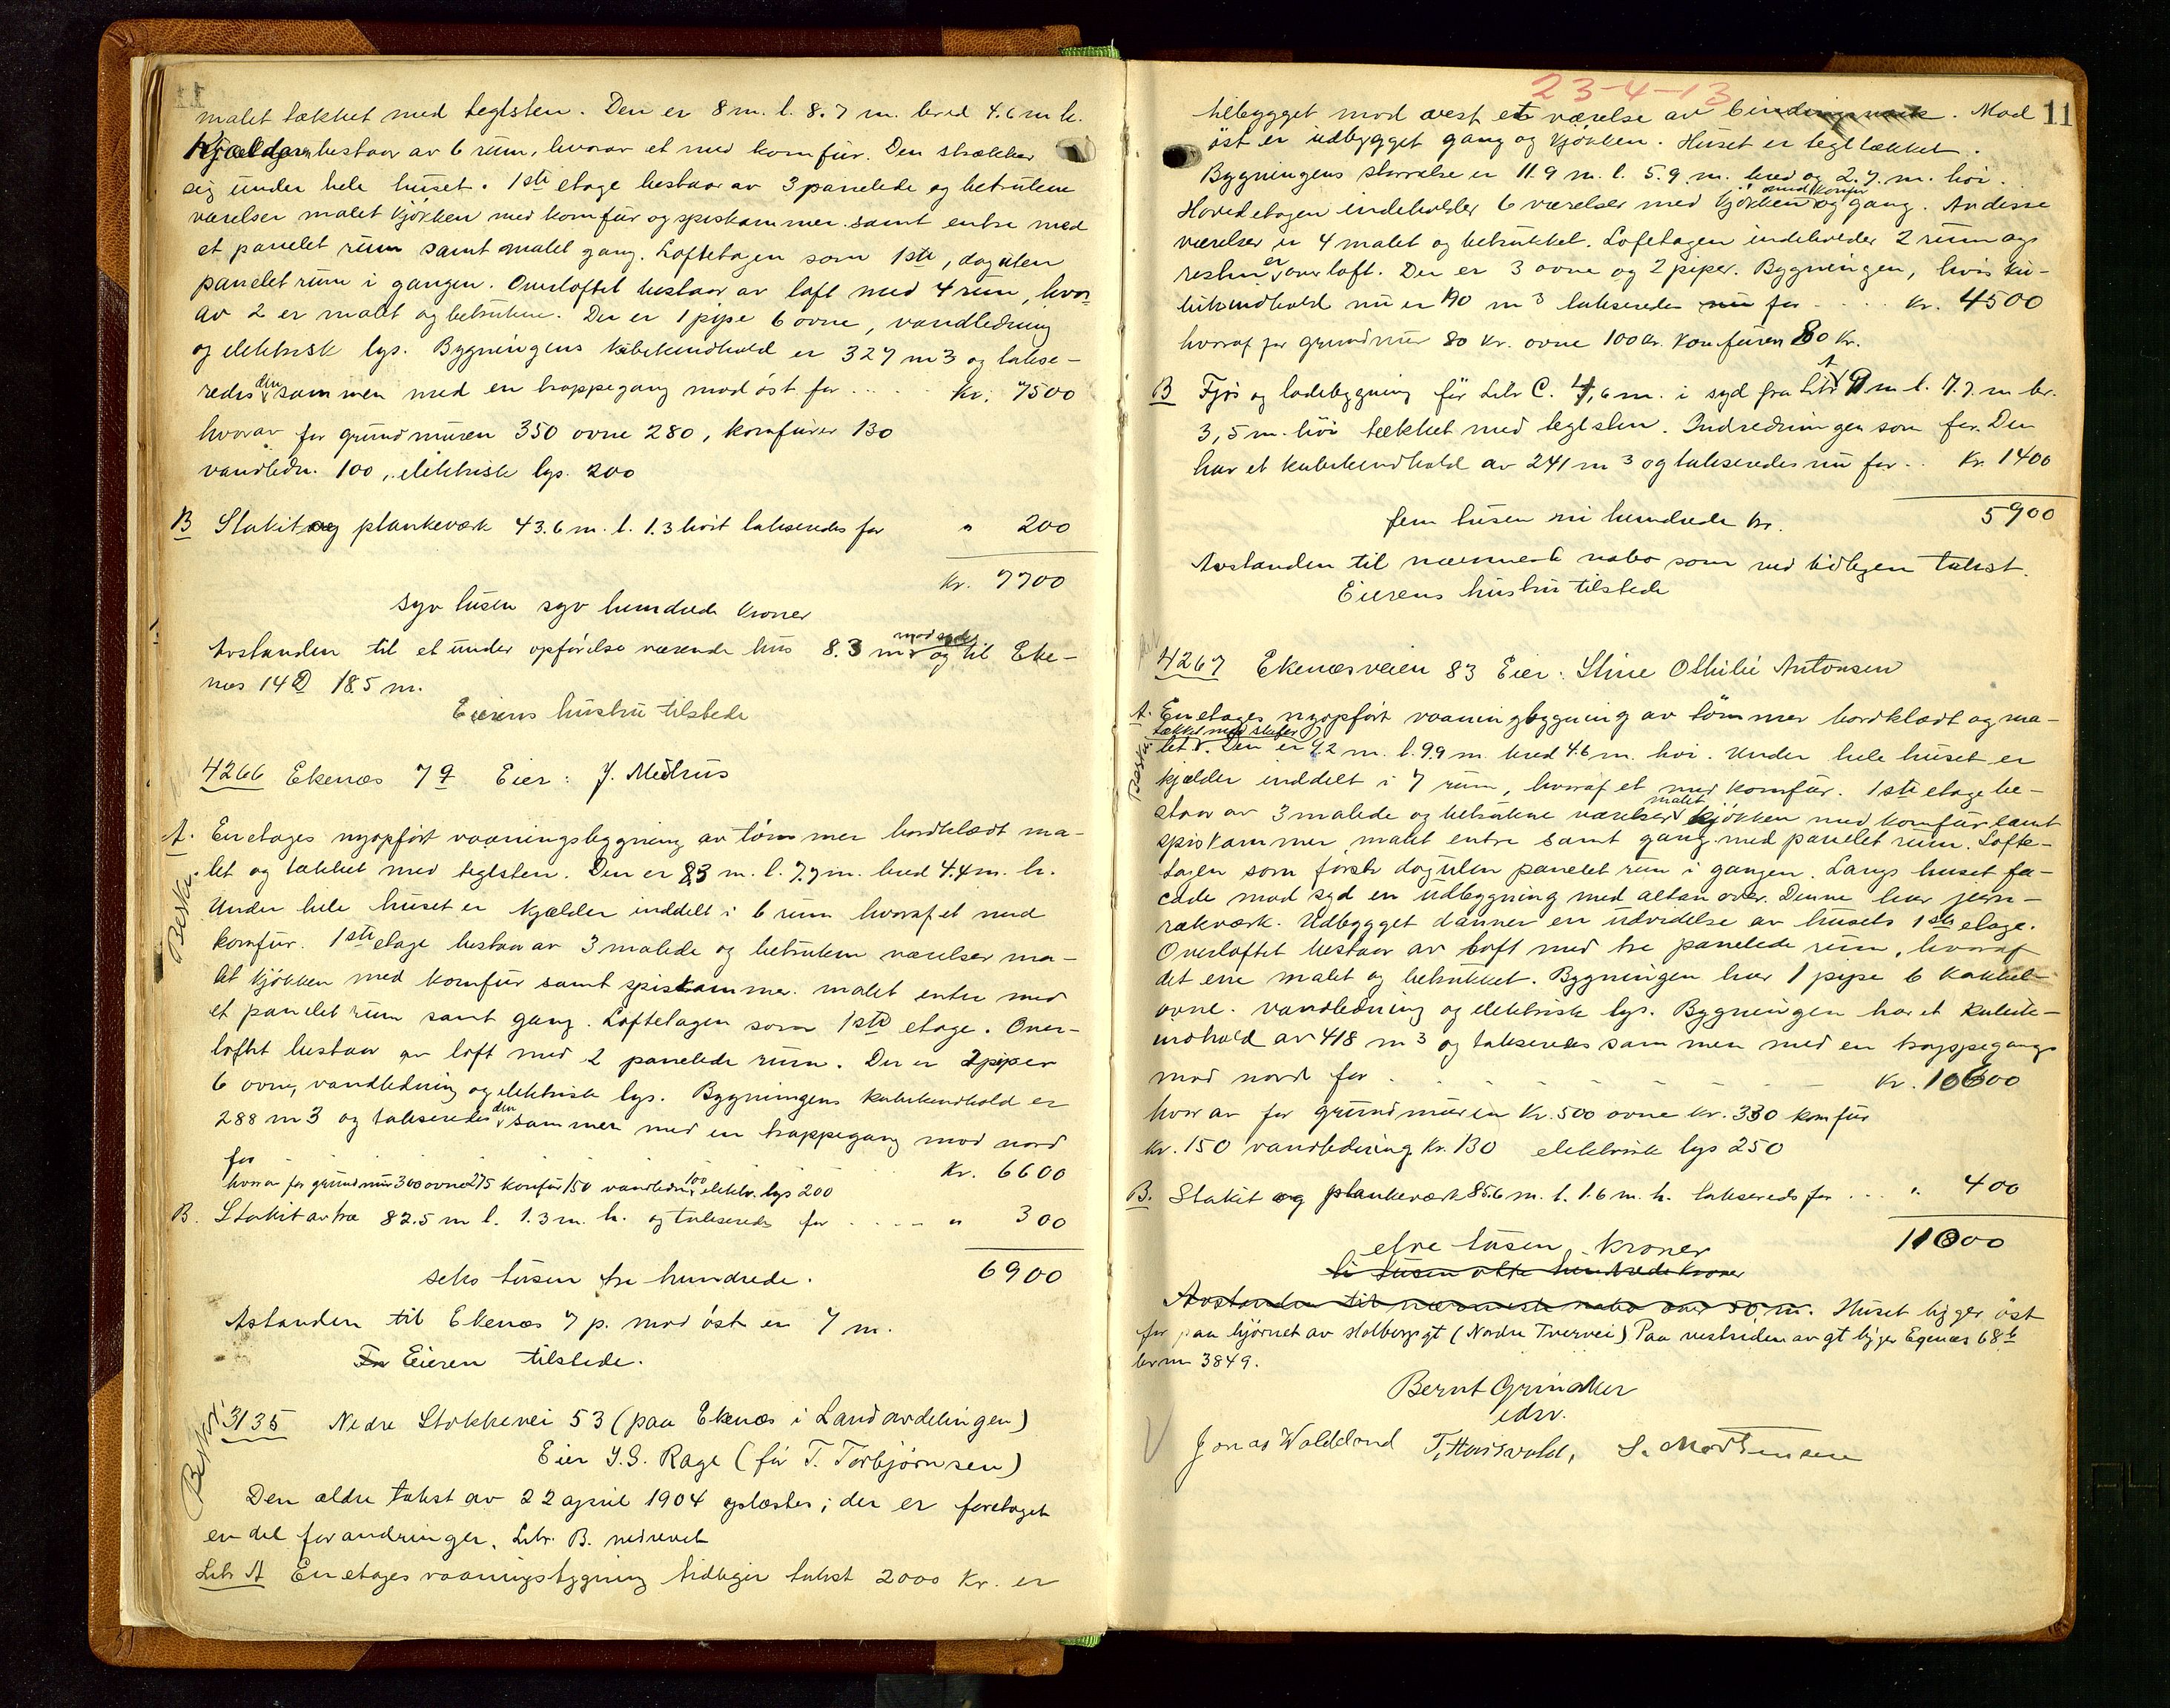 malet tækket med teglsten. Den er 8 m. l. 8.7 m. bred 4.6 m h.
Kjælderen bestaar av 6 rum, hvorav et med komfur. Den strækker
sig under hele huset. 1ste etage bestaar av 3 panelede og betrukne
værelser malet kjökken med komfur og spiskammer samt entre med
et panelet rum samt malet gang. Loftetagen som 1ste, dog uten
panelet rum i gangen. Overloftet bestaar av loft med 4 rum, hvor
av 2 er malet og betrukne. Der er 1 pipe 6 ovne, vandledning
og elektrisk lys. Bygningens kubikindhold er 327 m3 og takse-
redes den sammen med en trappegang mod øst for .... Kr. 7500
hvorav for grundmuren 350 ovne 280, komfurer 130
vandledn. 100, elektrisk lys. 200
B Stakit og plankeværk 43.6 m. l. 1.3 høit takseredes for " 200
Kr. 7700
syv tusen syv hundrede kroner
Avstanden til et under opførelse værende hus 8.3 m mod syd og til Eke-
næs 14Q 18.5 m.
Eierens hustru tilstede
4266 Ekenæs 7q Eier: J. Meltrus
A. Enetages nyopført vaaningsbygning av tömmer bordklædt ma-
Beskr. let og tækket med teglsten. Den er 8,3 m. l. 7.7 m. bred 4.4 m. h.
Under hele huset er kjælder inddelt i 6 rum hvoraf et med
komfur. 1ste etage bestaar av 3 malede og betrukne værelser ma-
let kjökken med komfur samt spiskammer. malet entre med
et panelet rum samt gang. Loftetagen som 1ste etage. Over-
loftet bestaar av loft med 2 panelede rum. Der er 2 piper
6 ovne, vandledning og elektrisk lys. Bygningens kubikindhold er
288 m3 og takseredes den sammen med en trappegang mod nord
for Kr. 6600
hvorav for grundmur 300 ovne 275 komfur 150 vandledn. 100 elektr. lys 200
B. Stakit av træ 82.5 m l. 1.3 m. h. og takseredes for ..... " 300
6900
seks tusen tre hundrede.
Astanden til Ekenæs 7 p. mod öst er 7 m.
Fr Eieren tilstede.
Beskr. 3135 Nedre Stokkevei 53 (paa Ekenæs i Landavdelingen)
Eier J.G. Rage (för T. Torbjørnsen)
Den ældre takst av 22 april 1904 oplæstes; der er foretaget
en del forandringer. Litr. B. nedrevet
Litr A Enetages vaaningsbygning tidligere takst 2000 Kr. er
23-4-13
11
tilbygget mod vest et værelse av bindingsverk. Mod
öst er udbygget gang og kjökken. Huset er tegltækket.
Bygningens størrelse er 11.9 m. l. 5.9 m. bred og 2.7. m. høi.
Hovedetagen indeholder 6 værelser med kjökken med komfur og gang. Av disse
værelser er 4 malet og betrukket. Loftetagen indeholder 2 rum og
resten er over loft. Der er 3 ovne og 2 piper. Bygningen, hvis ku-
bikindhold nu er 190 m3 takseredes nu for .... Kr. 4500
hvoraf for grundmur 80 kr. ovne 100 kr. komfuren 80 Kr.
B Fjös og ladebygning för Litr C. 4,6 m. i syd fra Litr A 9 m l. 7.7 m br.
3,5 m. høi tækket med teglsten. Indredningen som før. Den
har et kubikindhold av 241 m3 og takseredes nu for .. Kr. 1400
5900
fem tusen ni hundrede kr.
Avstanden til nærmeste nabo som ved tidligere takst.
Eierens hustru tilstede
4267 Ekenæsveien 83 Eier: Stine Othilie Antonsen
A. Enetages nyopført vaaningbygning av tömmer bordklædt og ma-
Beskr. let tækket med skifer. Den er 9.2 m. l. 9.9 m. bred 4.6 m. høi. Under hele huset er
kjælder inddelt i 7 rum, hvoraf et med komfur. 1ste etage be-
staar av 3 malede og betrukne værelser malet kjökken med komfur samt
spiskammer malet entre samt gang med panelet rum. Lofte-
tagen som første dog uten panelet rum i gangen. Langs huset fa-
cade mod syd en udbygning med altan over. Denne har jern-
rækværk. Udbygget danner en udvidelse av husets 1ste etage.
Overloftet bestaar av loft med tre panelede rum, hvoraf
det ene malet og betrukket. Bygningen har 1 pipe 6 kakkel-
ovne. vandledning og elektrisk lys. Bygningen har et kubik-
indhold av 418 m3 og takseres sammen med en trappegang
mod nord for . . . . . . . Kr. 10600
hvor av for grundmuren Kr. 500 ovne kr. 330 komfur
Kr. 150 vandledning Kr. 130 elektrisk lys 250
B. Stakit og plankeværk 85.6 m. l. 1.6 m. h. takseredes for .... " 400
11000
elve tusen kroner
ti tusen otte hundrede kroner
Avstanden til nærmeste nabo over 50 m. Huset ligger öst
for paa hjørnet av Holbergsgt (Nordre Tvervei) Paa vestsiden av gt ligger Egenæs 68b
br no 3849.
Bernt Grindaker
edsv.
Jonas Waldeland T. Hausvold, S. Mortensen